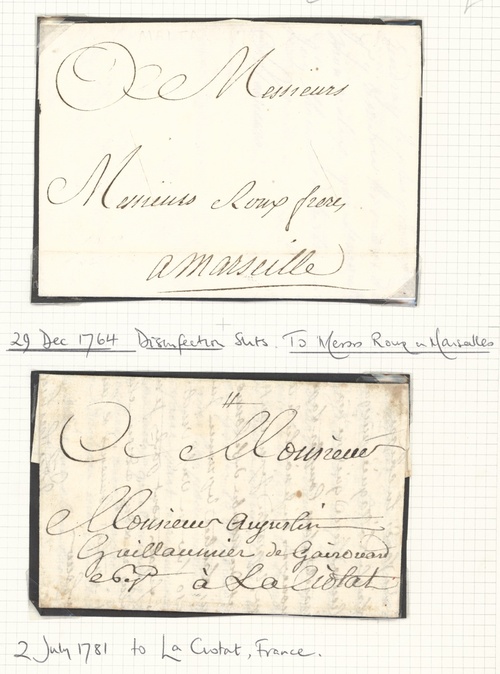 A Messieurs
Messieurs Roux freres
a marseille
29 Dec 1764 Disinfection Slits. To Messrs Roux in Marseilles
A Monsieur
Monsieur Augustin
Guillaumier de
à La Ciotat
2 July 1781 to La Ciotat, France.